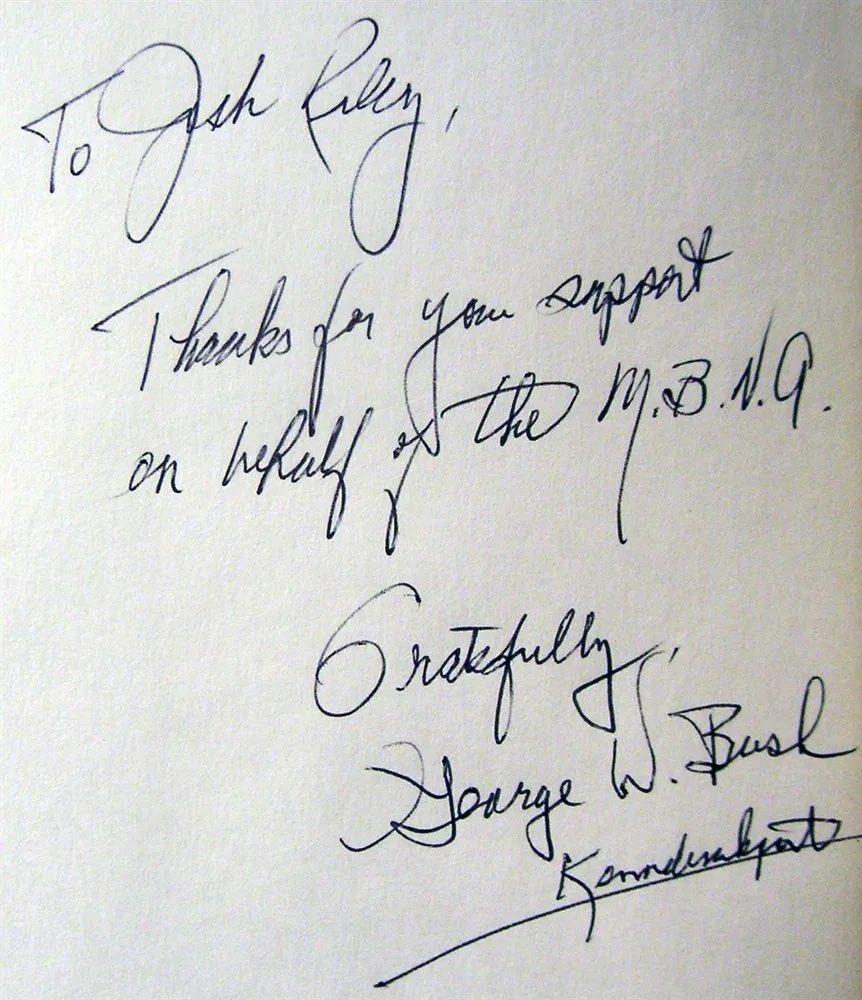 To Josh Riley,
Thanks for your support
on behalf of the M.B.N.A.
Gratefully,
George W. Bush